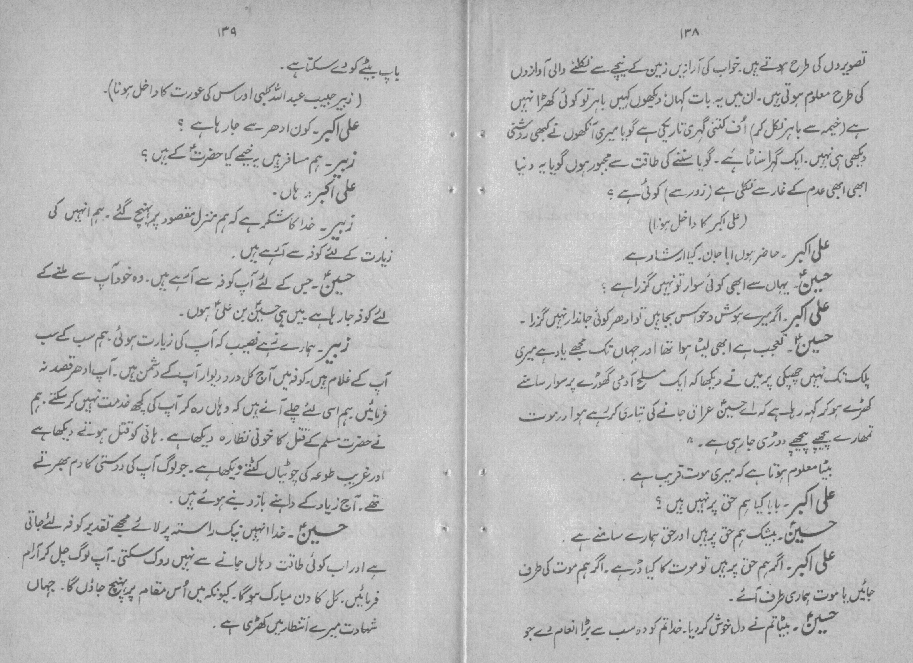 ۱۳۸
تصویروں کی طرح ہوتے ہیں۔ خواب کی آوازیں زمین کے نیچے سے نکلنے والی آوازوں
کی طرح معلوم ہوتی ہیں۔ ان میں یہ بات کہاں؛ دیکھوں کہیں باہر تو کوئی کھڑا نہیں
ہے (خیمہ سے باہر نکل کر) اُف کتنی گہری تاریکی ہے گویا میری آنکھوں نے کبھی روشنی
دیکھی ہی نہیں۔ ایک گہرا سناٹا ہے۔ گویا سننے کی طاقت سے مجبور ہوں گویا یہ دنیا
ابھی ابھی عدم کے غار سے نکلی ہے (زور سے) کوئی ہے ؟
(علی اکبر کا داخل ہونا)
علی اکبر ۔ حاضر ہوں ابا جان۔ کیا ارشاد ہے۔
حسینؑ۔ یہاں سے ابھی کوئی سوار تو نہیں گزرا ہے ؟
علی اکبر۔ اگر میرے ہوش و حواس بجا ہیں تو ادھر کوئی جاندار نہیں گزرا ۔
حسینؑ۔ تعجب ہے ابھی لیٹا ہوا تھا اور جہاں تک مجھے یاد ہے میری
پلک تک نہیں جھپکی پر میں نے دیکھا کہ ایک مسلح آدمی گھوڑے پر سوار سامنے
کھڑے ہو کر کہہ رہا ہے کہ اے حسینؑ عراق جانے کی تیاری کر رہے ہو اور موت
تمھارے پیچھے پیچھے دوڑی جا رہی ہے ۔
بیٹا معلوم ہوتا ہے کہ میری موت قریب ہے ۔
علی اکبر۔ بابا کیا ہم حق پر نہیں ہیں ؟
حسینؑ۔ بیشک ہم حق پر ہیں اور حق ہمارے سامنے ہے ۔
علی اکبر۔ اگر ہم حق پر ہیں تو موت کا کیا ڈر ہے۔ اگر ہم موت کی طرف
جائیں یا موت ہماری طرف آئے۔
حسینؑ ۔ بیٹا تم نے دل خوش کر دیا۔ خدا تم کو وہ سب سے بڑا انعام دے جو
۱۳۹
باپ بیٹے کو دے سکتا ہے۔
(زہیر حبیب عبداللہ کلبی اور اس کی عورت کا داخل ہونا)۔
علی اکبر۔ کون ادھر سے جا رہا ہے ؟
زہیر۔ ہم مسافر ہیں یہ خیمے کیا حضرتؑ کے ہیں ؟
علی اکبر:۔ ہاں۔
زہیر۔ خدا کا شکر ہے کہ ہم منزل مقصود پر پہنچ گئے۔ ہم انہیں کی
زیارت کے لئے کوفہ سے آئے ہیں۔
حسینؑ۔ جس کے لئے آپ کوفہ سے آئے ہیں۔ وہ خود آپ سے ملنے کے
لئے کوفہ جا رہا ہے۔ میں ہی حسینؑ بن علیؑ ہوں۔
زہیر۔ ہمارے زہے نصیب کہ آپ کی زیارت ہوئی۔ ہم سب کے سب
آپ کے غلام ہیں۔ کوفہ میں آج کل در و دیوار آپ کے دشمن ہیں۔ آپ ادھر قصد نہ
فرمائیں۔ ہم اسی لئے چلے آئے ہیں کہ وہاں رہ کر آپ کی کچھ خدمت نہیں کر سکتے۔ ہم
نے حضرت مسلم کے قتل کا خونی نظارہ دیکھا ہے۔ ہانی کو قتل ہوتے دیکھا ہے
اور غریب طوعہ کی چوٹیاں کٹتے دیکھا ہے۔ جو لوگ آپ کی دوستی کا دم بھرتے
تھے۔ آج زیاد کے داہنے بازو بنے ہوئے ہیں ۔
حسینؑ۔ خدا انہیں نیک راستہ پر لائے مجھے تقدیر کوفہ لئے جاتی
ہے اور اب کوئی طاقت وہاں جانے سے نہیں روک سکتی۔ آپ لوگ چل کر آرام
فرمائیں۔ کل کا دن مبارک ہوگا۔ کیونکہ میں اُس مقام پر پہنچ جاؤں گا۔ جہاں
شہادت میرے انتظار میں کھڑی ہے ۔